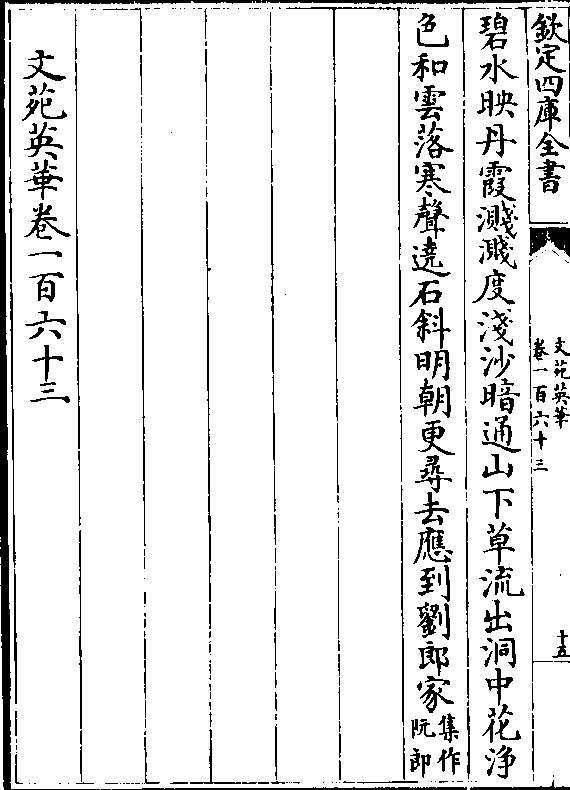 欽定四庫全書
文苑英華
卷一百六十三
十五
碧水映丹霞濺濺度淺沙暗通山下草流出洞中花浄
色和雲落寒聲遶石斜明朝更尋去應到劉郎家集作
阮郎
文苑英華卷一百六十三